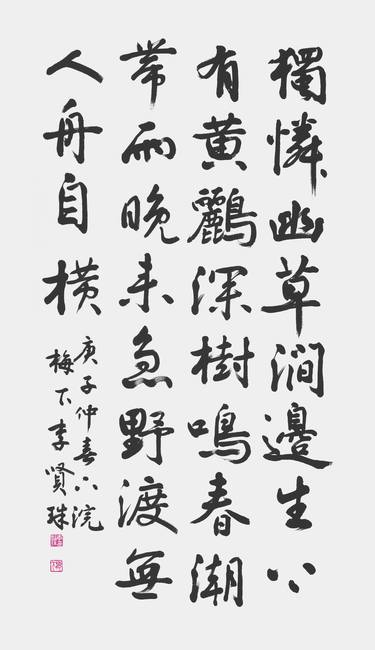 獨憐幽草澗邊生上
有黃鸝深樹鳴春潮
帶雨晚来急野渡無
人舟自橫
庚子仲春下浣
梅下李賢珠